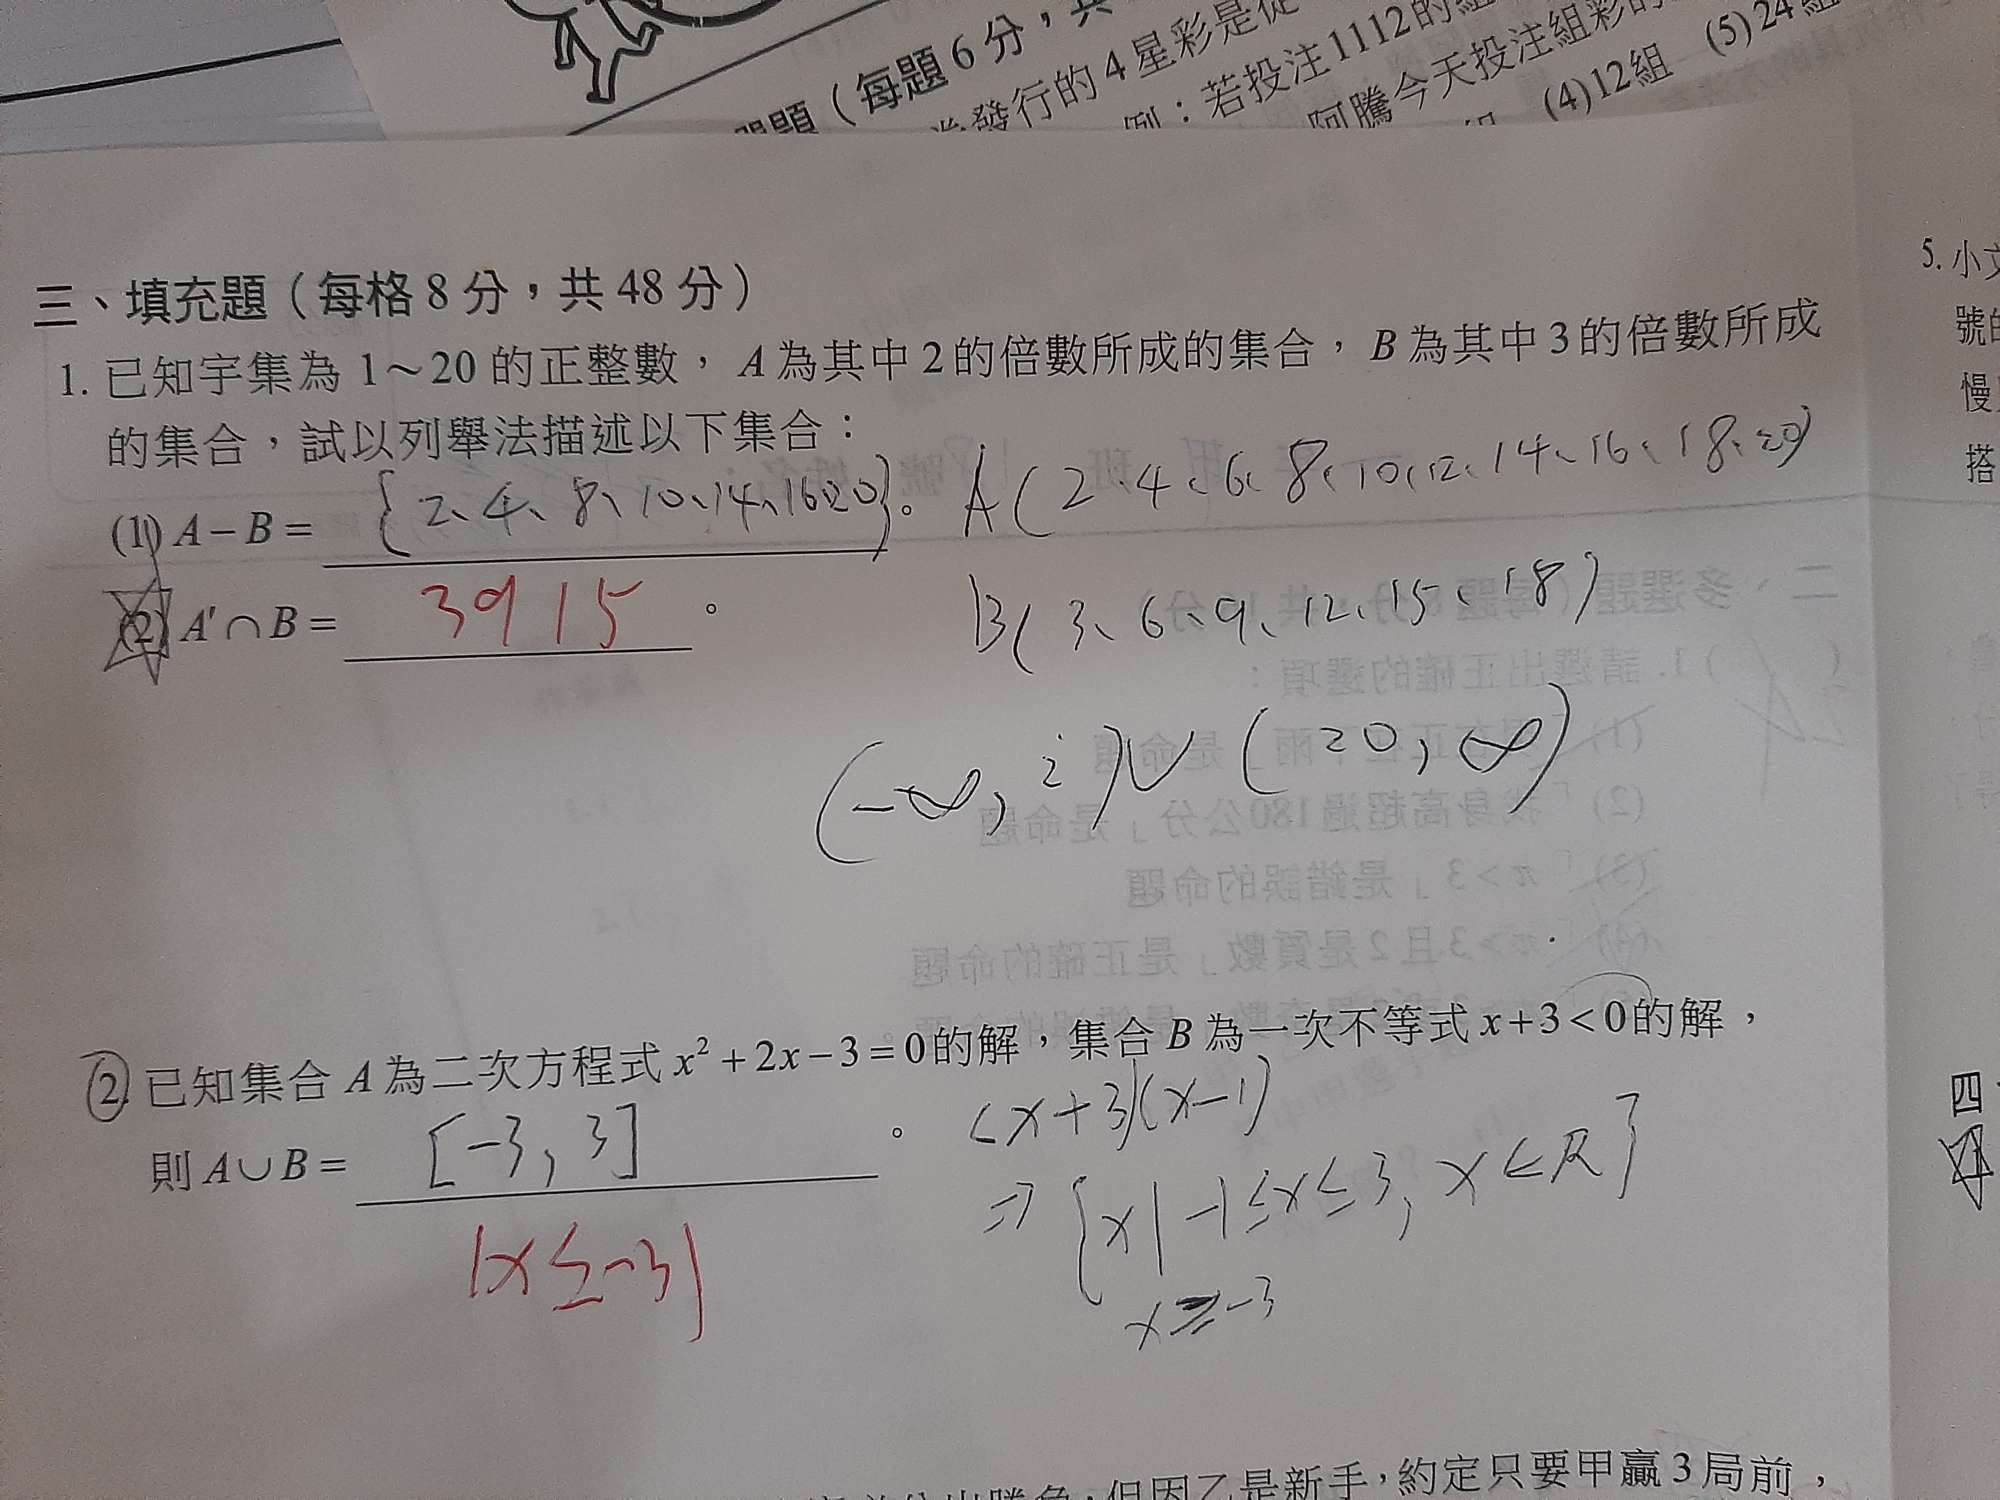 題（每題6分，共
發行的4星彩是從
例：若投注1112的組
阿騰今天投注組彩的
(4)12組 (5)24組
三、填充題（每格8分，共48分）
1. 已知宇集為 1～20 的正整數， A 為其中 2 的倍數所成的集合， B 為其中 3 的倍數所成
的集合，試以列舉法描述以下集合：
(1) A－B＝ {2、4、8、10、14、16、20}。 A(2、4、6、8、10、12、14、16、18、20)
(2) A′∩B＝ 3 9 15 。 B(3、6、9、12、15、18)
(-∞, 2)∪(20, ∞)
2. 已知集合 A 為二次方程式 x²+2x－3＝0的解，集合 B 為一次不等式 x+3<0的解，
則 A∪B＝ [-3, 3] 。 (x+3)(x-1)
⇒ {x|-1≤x≤3, x∈R}
{x≤-3}
x≥-3
但因乙是新手，約定只要甲贏 3 局前，
5. 小文
號的
慢
搭
四